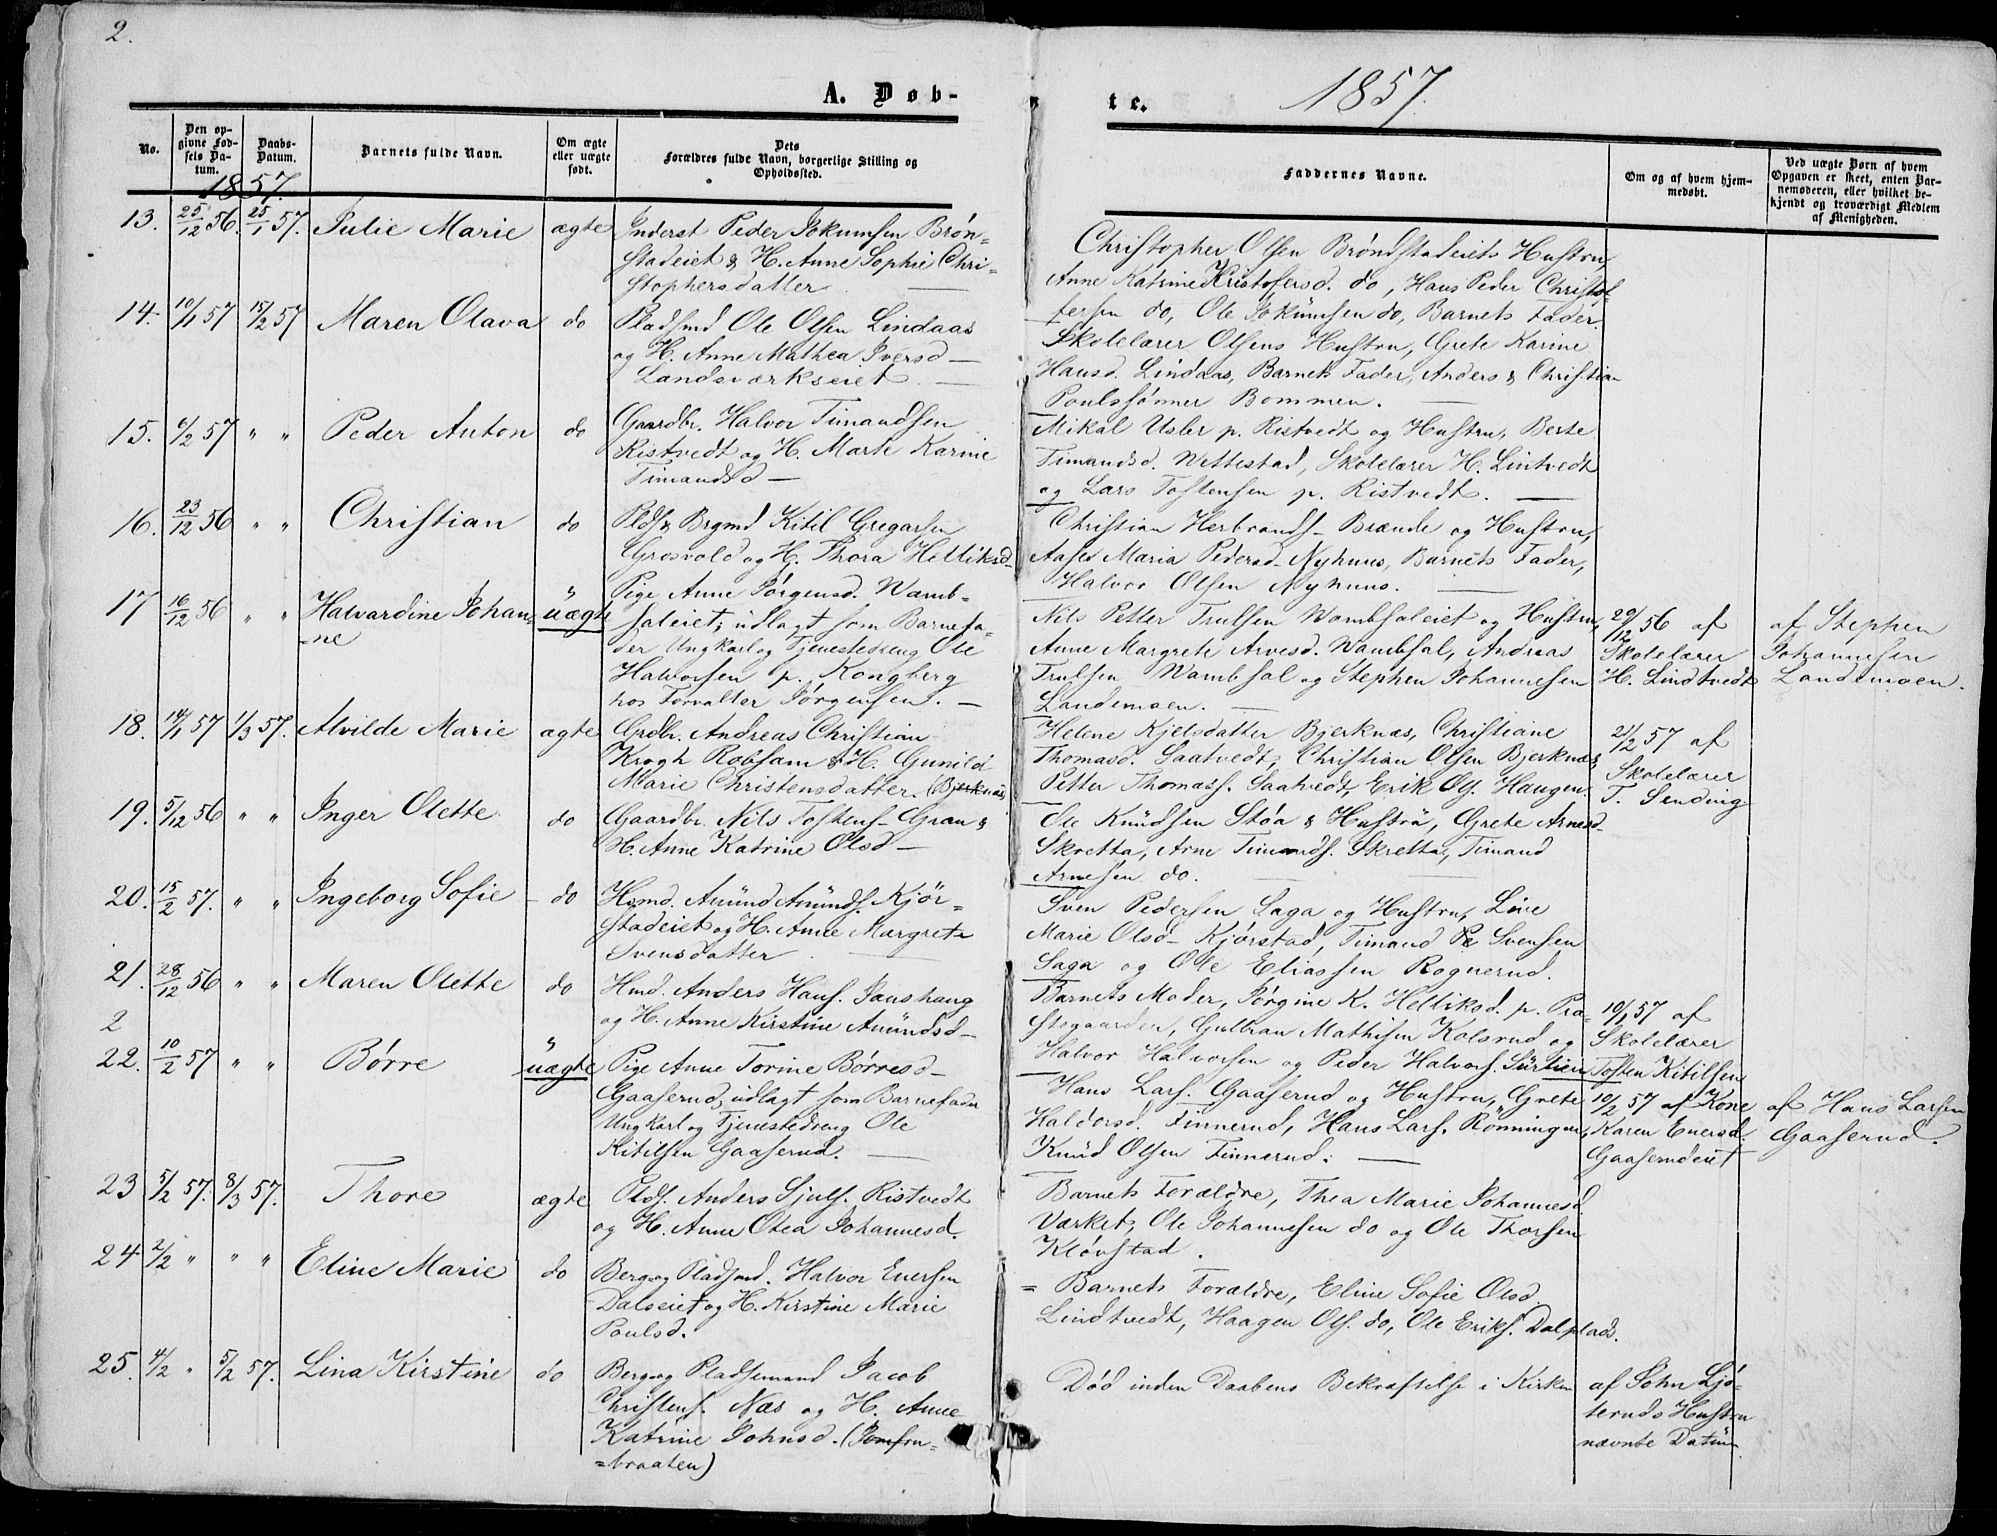 2.
A. Døb-
te.
1857.
No.
Den op-
givne Fød-
sels Da-
tum.
Daabs-
Datum.
Barnets fulde Navn.
Om ægte
eller uægte
født.
Dets
Forældres fulde Navn, borgerlige Stilling og
Opholdssted.
Faddernes Navne.
Om og af hvem hjem-
medøbt.
Ved uægte Børn af hvem
Opgaven er skeet, enten Bar-
nemoderen, eller hvilket be-
kjendt og troværdigt Medlem
af Menigheden.
1857.
13. 25/12 56. 25/1 57. Julie Marie ægte Inderst Peder Jokumsen Brøn-
stadeiet & H. Anne Sophie Chri-
stophersdatter
Christopher Olsen Brøndstadeiets Hustru,
Anne Katrine Kristofersd. do, Hans Peder Christof-
fersen do, Ole Jokümsen do, Barnets Fader.
14. 10/1 57 15/2 57 Maren Olava do Pladsmd Ole Olsen Lindaas
og H. Anne Mathea Iversd —
Landsværkseiet. —
Skolelærer Olsens Hustru, Grete Karine
Hansd. Lindaas, Barnets Fader, Anders & Christian
Poulssønner Bommen. —
15. 6/2 57 " " Peder Anton do Gaardbr. Halvor Timandsen
Ristvedt og H. Marte Karine
Timandsd —
Mikal Usler p. Ristvedt og Hustru, Berte
Timandsd. Wettestad, Skolelærer H. Lintvedt
og Lars Tostensen p. Ristvedt. —
16. 23/12 56 " " Christian do Plds & Brgmd Kitil Gregarsen
Grosvold og H. Thora Helliksd-
Christian Herbrands- Brænde og Hustru,
Aase Maria Pedersd- Nyhuus, Barnets Fader,
Halvor Olsen Nyhuus. —
17 16/12 56 " " Halvardine Johan-
=ne
uægte Pige Anne Jørgensd. Wamb-
saleiet; udlagt som Barnefa-
der Ungkarl og Tjenestedreng Ole
Halvorsen p. Kongberg
hos Forvalter Jørgensen. —
Nils Petter Trulsen Wambsaleiet og Hustru,
Anne Margrete Arvesd. Wambsal, Andreas
Trulsen Wambsal og Stephen Johannesen
Landemoen. —
29/12 56 af
Skolelærer
H. Lindtvedt
af Stephen
Johannesen
Landemoen.
18. 14/1 57 1/3 57. Alvilde Marie ægte Grdbr. Andreas Christian
Krogh Robsam & H. Gunild
Marie Christensdatter. (Bjerknæs)
Helene Kjelsdatter Bjerknæs, Christiane
Thomasd. Saatvedt, Christian Olsen Bjerknæs,
Petter Thomass. Saatvedt, Erik Ols. Haugen.
21/2 57 af
Skolelærer
T. Sending
19. 5/12 56 " " Inger Olette. do Gaardbr. Nils Tostens- Gran &
H. Anne Katrine Olsd —
Ole Knüdsen Støa & Hustrü, Grete Arnesd-
Skretta, Arne Timands. Skretta, Timand
Arnesen do.
20. 15/2 57. " " Ingeborg Sofie - do Hsmd. Amünd Amünds. Kjør-
stadeiet og H. Anne Margrete
Svensdatter.
Sven Pedersen Saga og Hustru, Line
Marie Olsd- Kjørstad, Timand Pe Svensen
Saga og Ole Eliassen Rognerud.
21. 28/12 56 " " Maren Olette do Hmd. Anders Hans. Janshaug
og H. Anne Kirstine Amündsd —
Barnets Moder, Jørgine K. Helliksd. p. Præ-
stegaarden, Gulbran Mathisen Kolsrud og
Halvor Halvorsen og Peder Halvors. Sürtien
10/1 57 af
Skolelærer
Tosten Kitilsen
2
22. 10/2 57 " " Børre uægte Pige Anne Torine Børresd —
Gaaserud, udlagt som Barnefader
Ungkarl og Tjenestedreng Ole
Kitilsen Gaaserud. —
Hans Lars. Gaaserud og Hustru, Grete
Haldorsd. Finnerud, Hans Lars. Rønningen,
Knüd Olsen Finnerud. —
10/2 57 af Kone
Karen Enersd.
Gaaserudeiet
af Hans Larsen
Gaaserud.
23 5/2 57. 8/3 57. Thore ægte Plds. Anders Sjuls. Ristvedt
og H. Anne Olea Johannesd.
Barnets Forældre, Thea Marie Johannesd.
Værket, Ole Johannesen do og Ole Thorsen
Kløvstad.
24 2/2 " " " Eline Marie do Berg og Pladsmd. Halvor Enersen
Dalseiet og H. Kirstine Marie
Poulsd.
= Barnets Forældre, Eline Sofie Olsd
Lindtvedt, Haagen Ols. do, Ole Eriks. Dalplads.
25. 4/2 " 5/2 57. Lina Kirstine do Berg og Pladsemand Jacob
Christens. Næs og H. Anne
Katrine Johnsd. (Jomfru-
=braaten)
Død inden Daabens Bekræftelse i Kirken
af John Ljø-
terud's Hustru
nævnte Datum